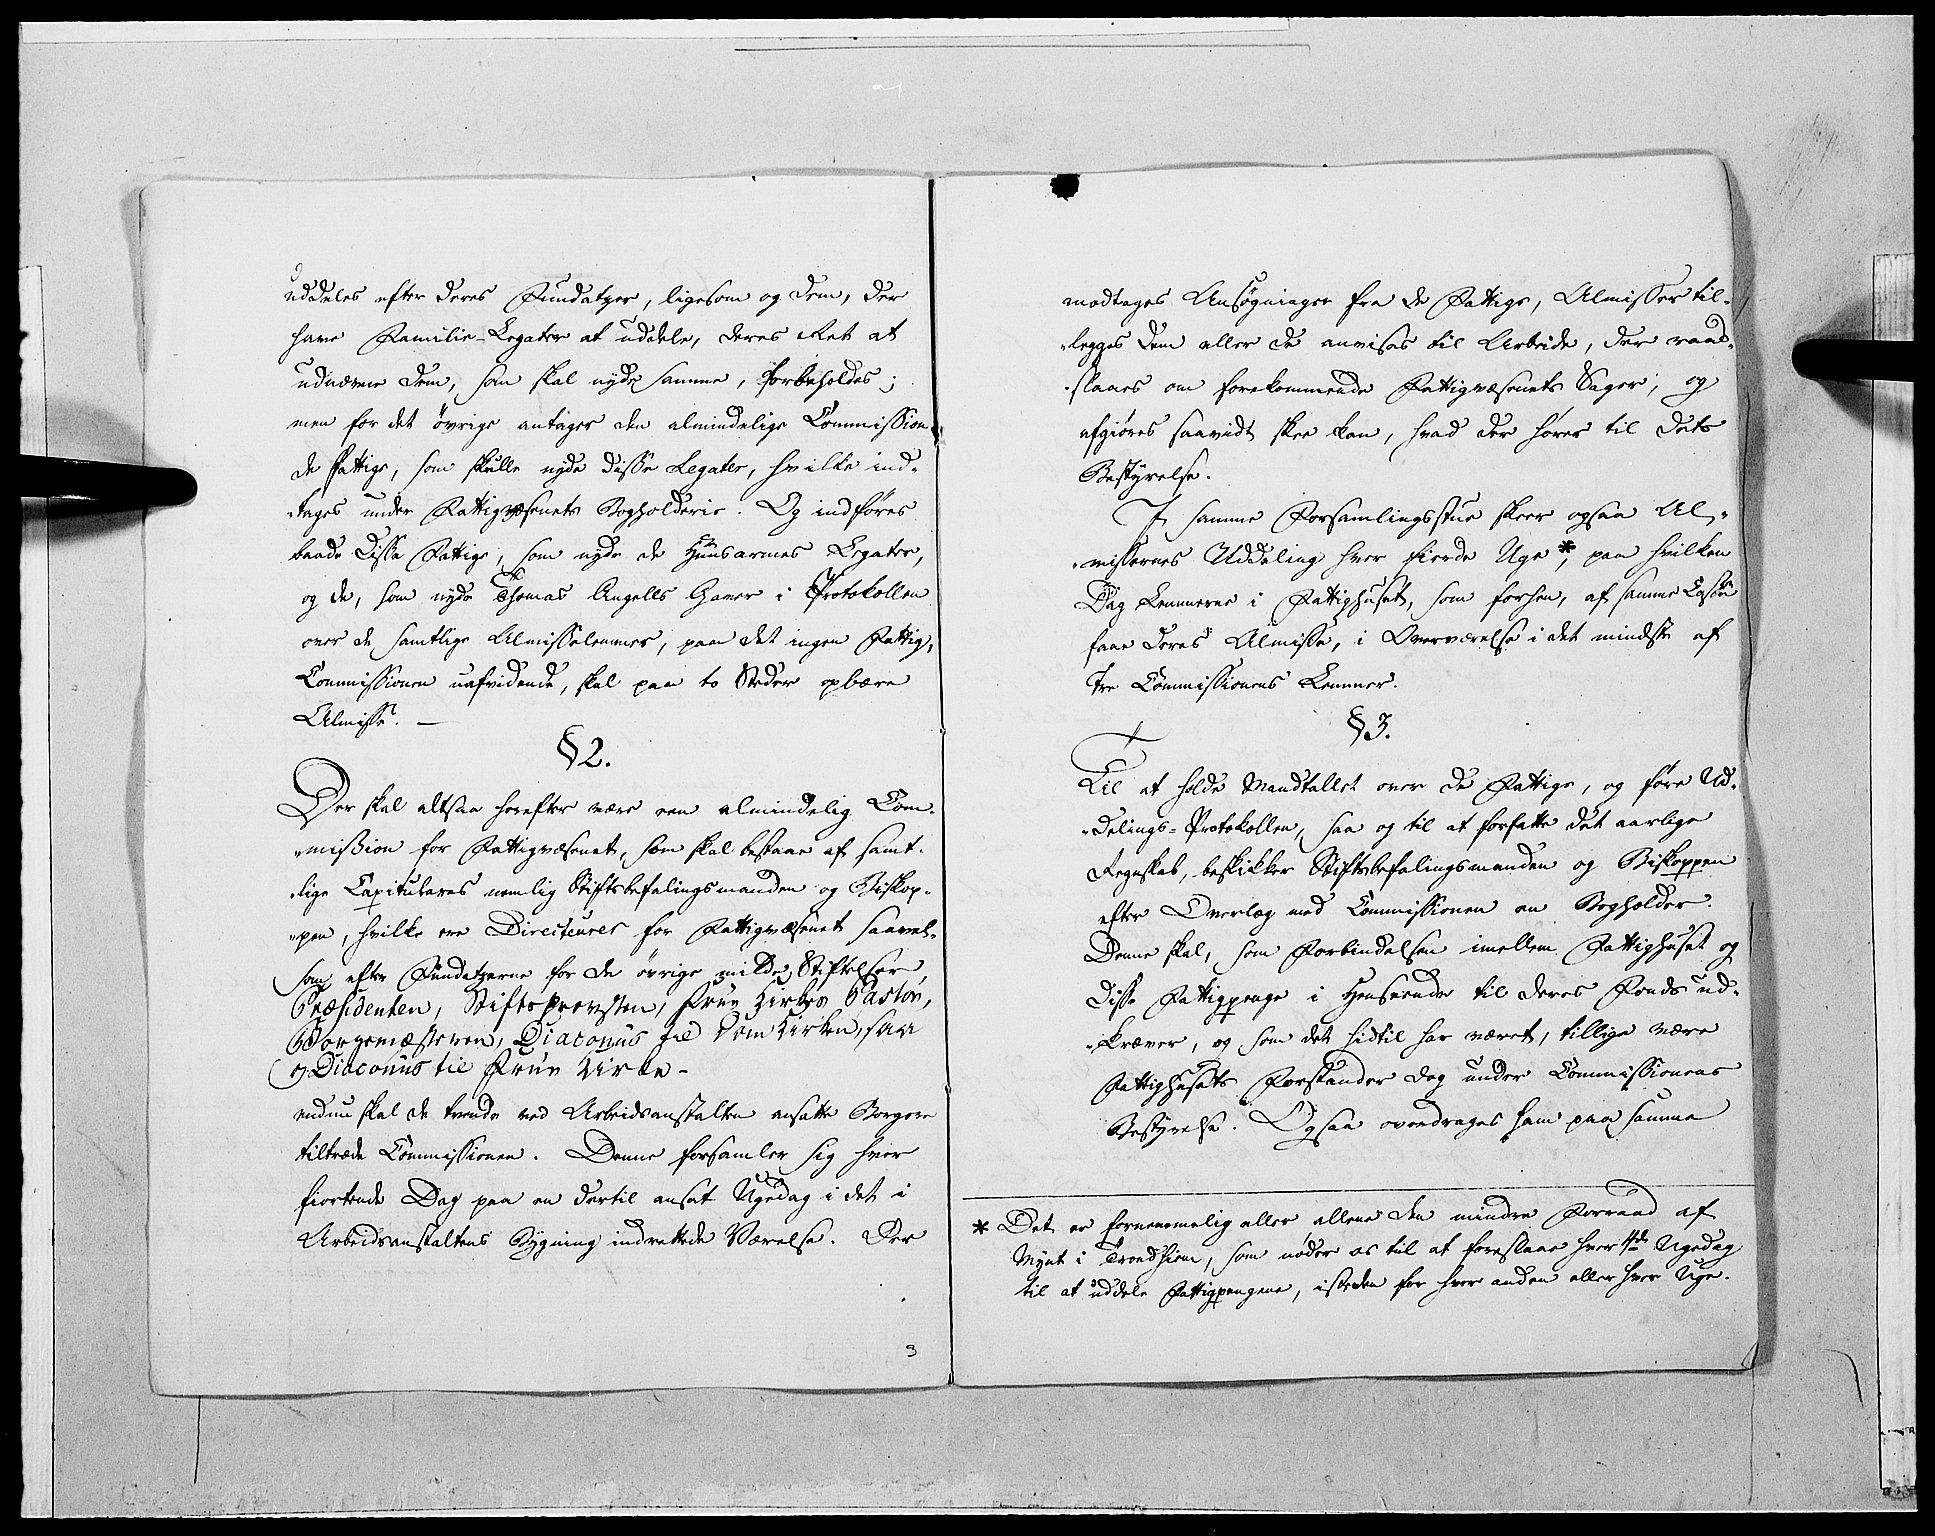 uddeles efter deres Fundatzer, ligesom og dem, der
have Familie-Legater at uddele, deres Ret at
udnævne dem, som skal nyde samme, forbeholdes;
men for det övrige antager den almindelige Commission
de fattige, som skulle nyde disse Legater, hvilke ind-
-tages under Fattigvæsenets Bogholderie. Og indføres
baade disse Fattige, som nyde de Huusarmes Legater,
og de, som nyde Thomas Angells Gaver i Protokollen
over de samtlige Almisselemmer, paa det ingen Fattig,
Commissionen uafvidende, skal paa to Steder opbære
Almisse. —
§ 2.
Der skal altsaa herefter være een almindelig Com-
-mission for Fattigvæsenet, som skal bestaae af samt-
-lige Capitulares nemlig Stiftsbefalingsmanden og Biskop-
-pen, hvilke ere Directeurer for Fattigvæsenet saavel-
som efter Fundatzerne for de övrige milde Stiftelser,
Præsidenten, Stiftsprovsten, Frue Kirkes Pastor,
Borgemesteren, Diaconus til Domkirken, saa
og Diaconus til Frue Kirke -
endnu skal de trende ved Arbeidsanstalten ansatte Borgere
tiltræde Commissionen. Denne forsamler sig hver
fiortende Dag paa en dertil ansat Ugedag i det i
Arbeidsanstaltens Bygning indrettede Værelse. Der
3
modtages Ansøgninger fra de Fattige, Almisser til-
-legges dem eller de anvises til Arbeide, der raad-
-slaaes om forekommende Fattigvæsenets Sager, og
afgiøres saavidt skee kan, hvad der hører til dets
Bestyrelse.
I samme Forsamlingsstue skeer ogsaa Al-
-missernes Uddeling hver fierde Uge *, paa hvilken
Dag Lemmerne i Fattighuset, som forhen, af samme Casse
faae deres Almisse, i Overværelse i det mindste af
tre Commissionens Lemmer.
§ 3.
Til at holde Mandtallet over de Fattige, og føre Ud-
-delings-Protokollen, saa og til at forfatte det aarlige
Regnskab, beskikker Stiftsbefalingsmanden og Biskoppen
efter Overlæg med Commissionen en Bogholder.
Denne skal, som Forbindelsen imellem Fattighuset og
disse Fattigpenge i Henseende til deres Fonds ud-
-kræver, og som det hidtil har været, tillige være
Fattighusets Forstander dog under Commissionens
Bestyrelse. Ogsaa overdrages ham paa samme
* Det er fornemmelig eller allene den mindre Forraad af
Mynt i Trondhiem, som nøder os til at foreslaae hver 4de Ugedag
til at uddele Fattigpengene, isteden for hver anden eller hver Uge.